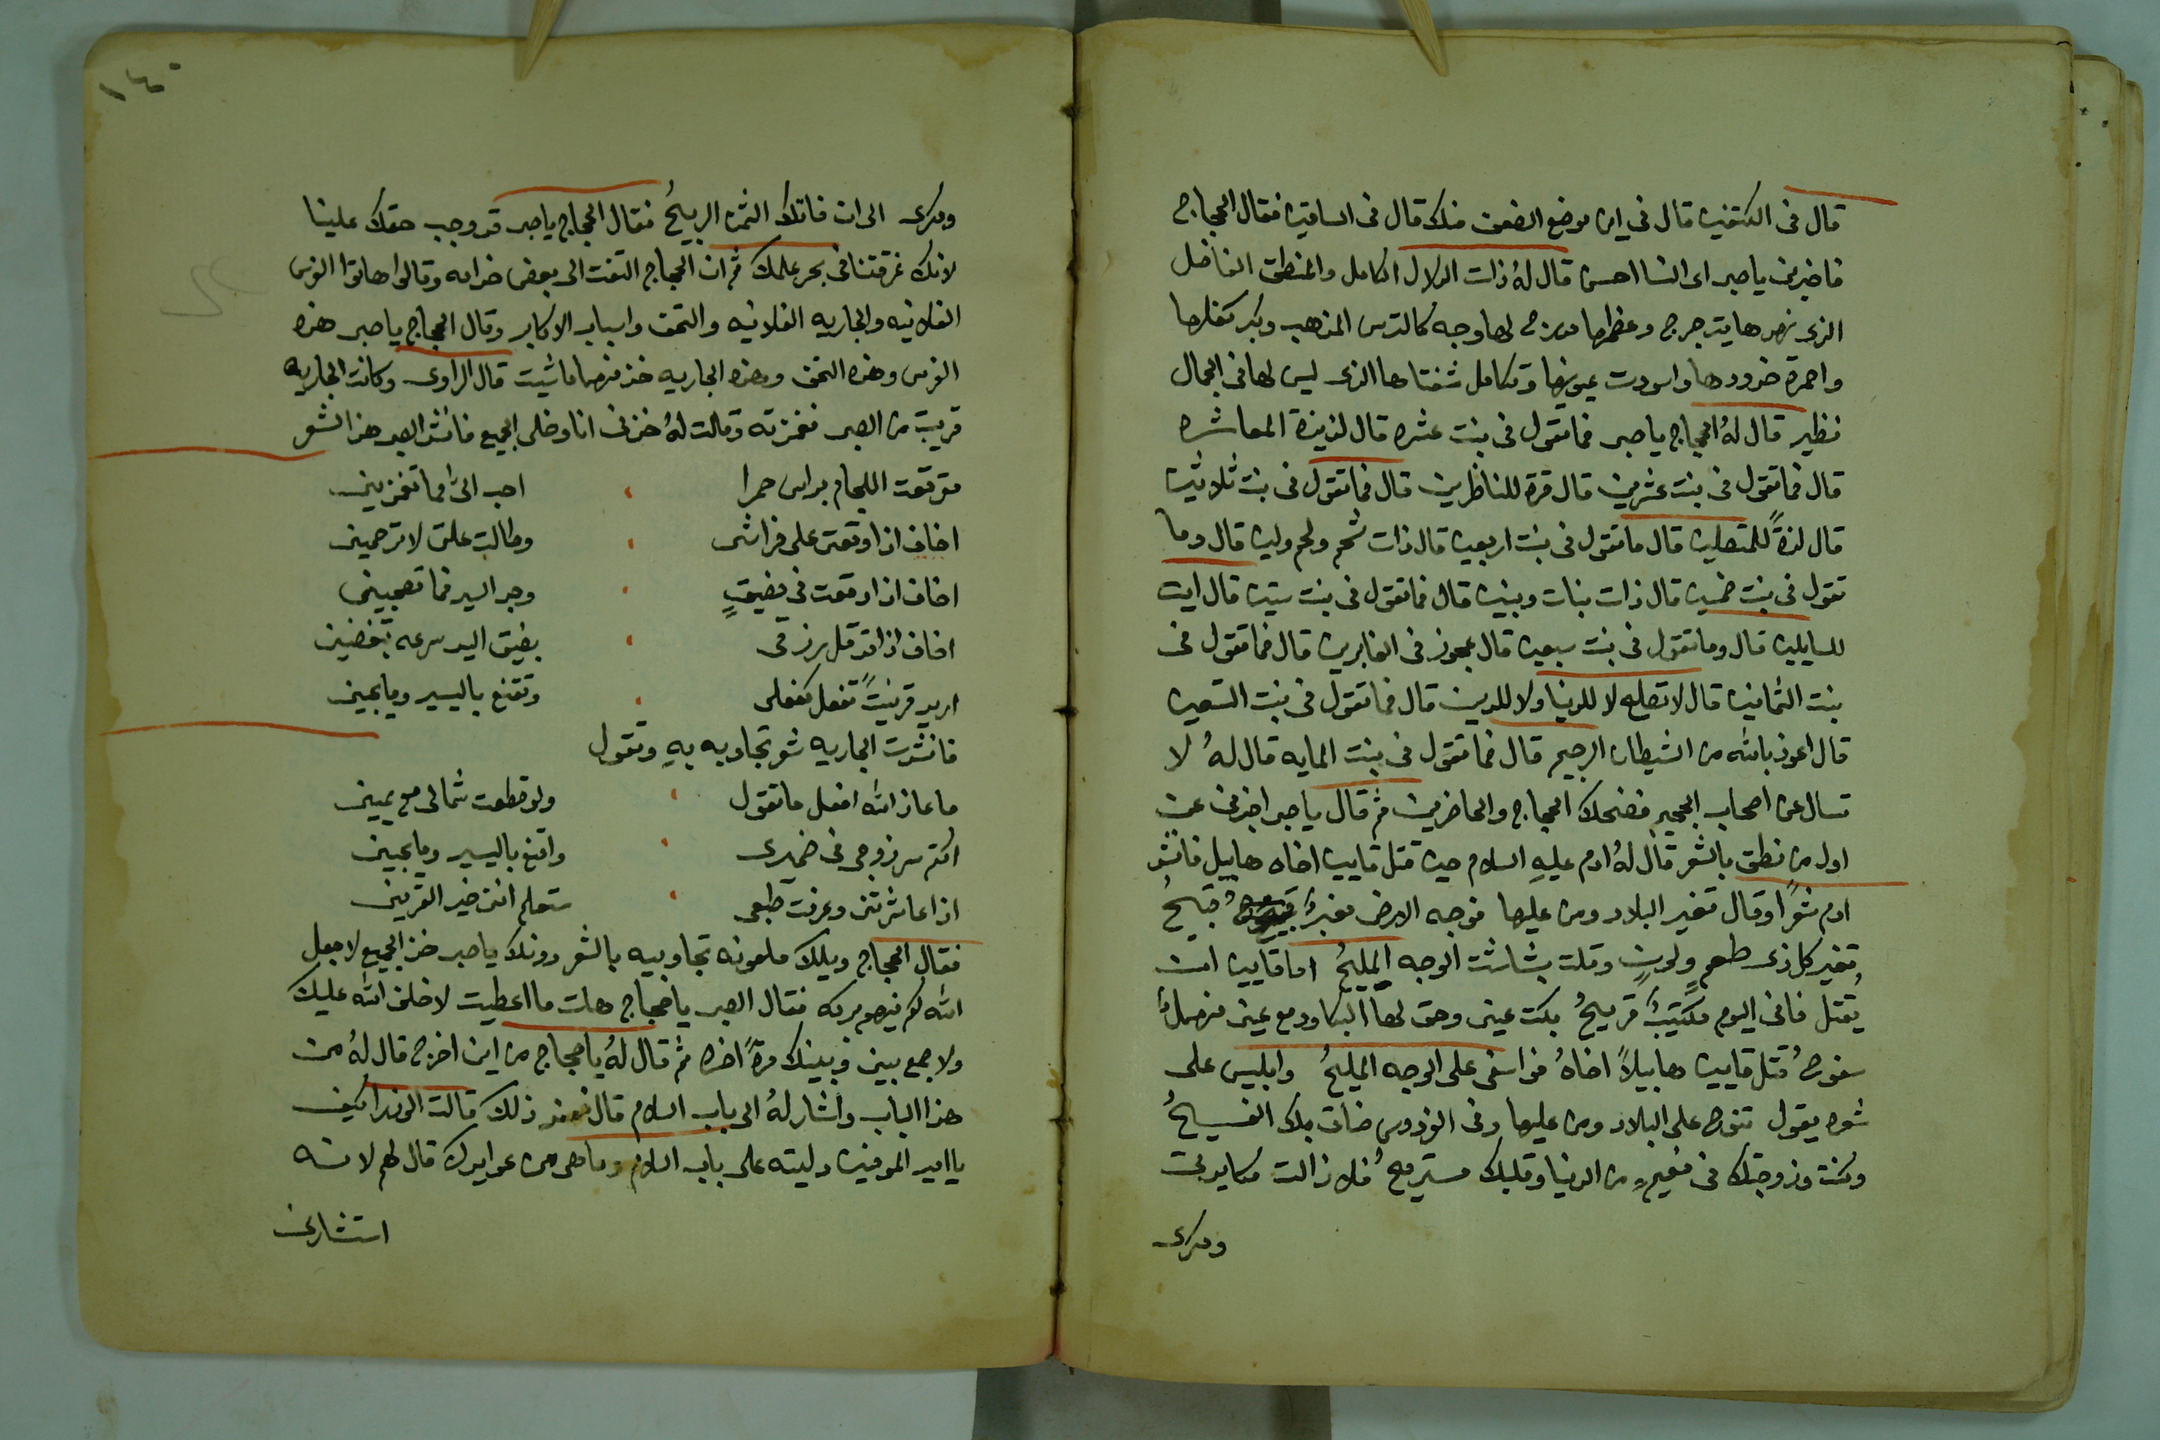 قال فى الكتفين قال فى اين موضع الضعف منك قال فى الساقين فقال الحجاج
فاخبرنى ياصبى اى النسا احسن قال لهُ ذات الدلال الكامل والمنطق الفاضل
الذى نهدها يترجرج وعضرها مدرج لها وجه كالترس المذهب وبكر كفلها
واحمرة خدودها واسودت عيونها وتكامل شفتاها الذى ليس لها فى الجمال
نظير قال لهُ الحجاج ياصبى فما تقول فى بنت عشره قال لذيذة المعاشره
قال فما تقول فى بنت عشرين قال قرة للناظرين قال فما تقول فى بنت ثلاثين
قال لذةً للمتصلين قال ما تقول فى بنت اربعين قال ذات شحم ولحم ولين قال وما
تقول فى بنت خمسين قال ذات بنات وبنين قال فما تقول فى بنت ستين قال اية
للسايلين قال وما تقول فى بنت سبعين قال عجوز فى الغابرين قال فما تقول فى
بنت الثمانين قال لا تصلح لا للدنيا ولا للدين قال فما تقول فى بنت التسعين
قال اعوذ بالله من الشيطان الرجيم قال فما تقول فى بنت المايه قال لهُ لا
تسال عن اصحاب الجحيم فضحك الحجاج والحاضرين ثم قال ياصبى اخبرنى عن
اول من نطق بالشعر قال لهُ ادم عليهِ السلام حين قتل قايين اخاه هابيل فانشد
ادم شعرًا وقال تغير البلاد ومن عليها فوجه الارض مغبرٌ قبيحُ
تغير كل ذى طعمٍ ولونٍ وقلت بشاشت الوجه المليحُ اما قايين انت
يُقتل فانى اليوم مكتيبٌ قريحُ بكت عينى وحق لها البكا ودمع عينى منهملٌ
سفوحُ قتل قايين هابيلاً اخاهُ فوا سفى على الوجه المليحُ وابليس على
شوره يقول تنوح على البلاد ومن عليها وفى الفردوس ضاق بك الفسيحُ
وكنت وزوجتك فى نعيمٍ من الدنيا وقلبك مستريحُ فلا زالت مكايدتى
ومكرى
١٤٠
ومكرى الى ان فاتك الثمن الربيحُ فقال الحجاج ياصبى قد وجب حقك علينا
لانك غرقتنا فى بحر علمك ثم ان الحجاج التفت الى بعض خدامه وقالوا هاتوا الفرس
الفلانيه والجاريه الفلانيه والتحف واسباب الاكابر وقال الحجاج ياصبى هذه
الفرس وهذه التحف وهذه الجاريه خذ منهما ما شيت قال الراوى وكانت الجاريه
قريب من الصبى فغمزته وقالت لهُ خذنى انا وخلى الجميع فانشد الصبى هذا الشعر
قرقعت اللجام براس حمرا احب الىّ مما تغمزينى
اخاف اذا وقعتى على فراشى وطالت علتى لا ترحمينى
اخاف اذا وقعت فى مضيقٍ وجر السير فما تصحبينى
اخاف اذا قد قل رزقى بضيق اليد سرعه تبغضينى
اريد قرينتً تفعل كفعلى وتقنع باليسير ويا يجينى
فانشدت الجاريه شعر تجاوبه بهِ وتقول
ما عاذ الله افعل ما تقول ولو قطعت شمالى مع يمينى
اكتم سر زوجى فى ضميرى واقنع باليسير وما يجينى
اذا عاشرتنى وعرفت طبعى ستعلم اننى خير القرينى
فقال الحجاج ويلك ملعونه تجاوبيه بالشعر دونك ياصبى خذ الجميع لا جعل
الله لك فيهم بركه فقال الصبى يا حجاج هات ما اعطيت لا خلف الله عليك
ولا جمع بينى وبينك مرةً اخره ثم قال لهُ يا حجاج من اين اخرج قال لهُ من
هذا الباب واشار لهُ الى باب السلام قال فعند ذلك قالت الوزرا كيف
يا امير المومنين دليته على باب السلام وما هى من عوايدك قال لهم لانه
استشارنى